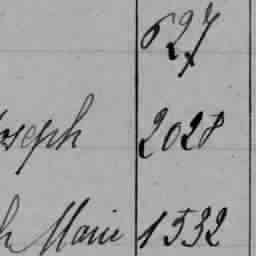 627
oseph 2028
h Marie 1532